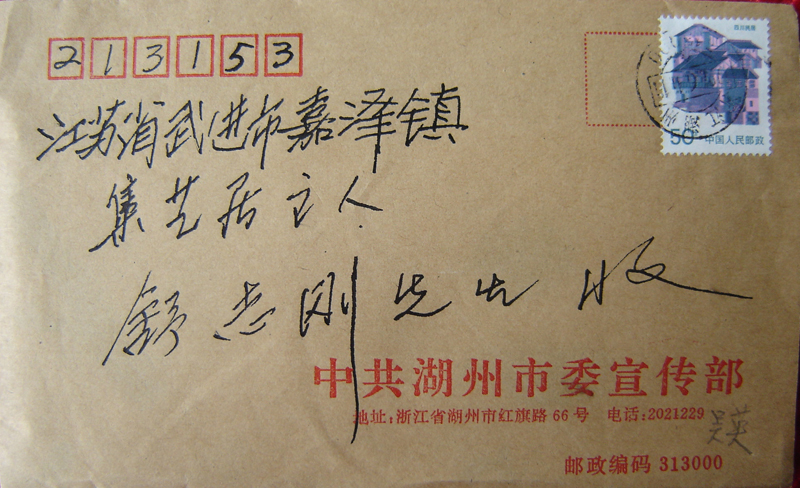 213153
四川民居
50 中国人民邮政
江苏省武进市嘉泽镇
集艺居主人
舒志刚先生 收
中共湖州市委宣传部
地址:浙江省湖州市红旗路66号 电话:2021229
吴英
邮政编码 313000